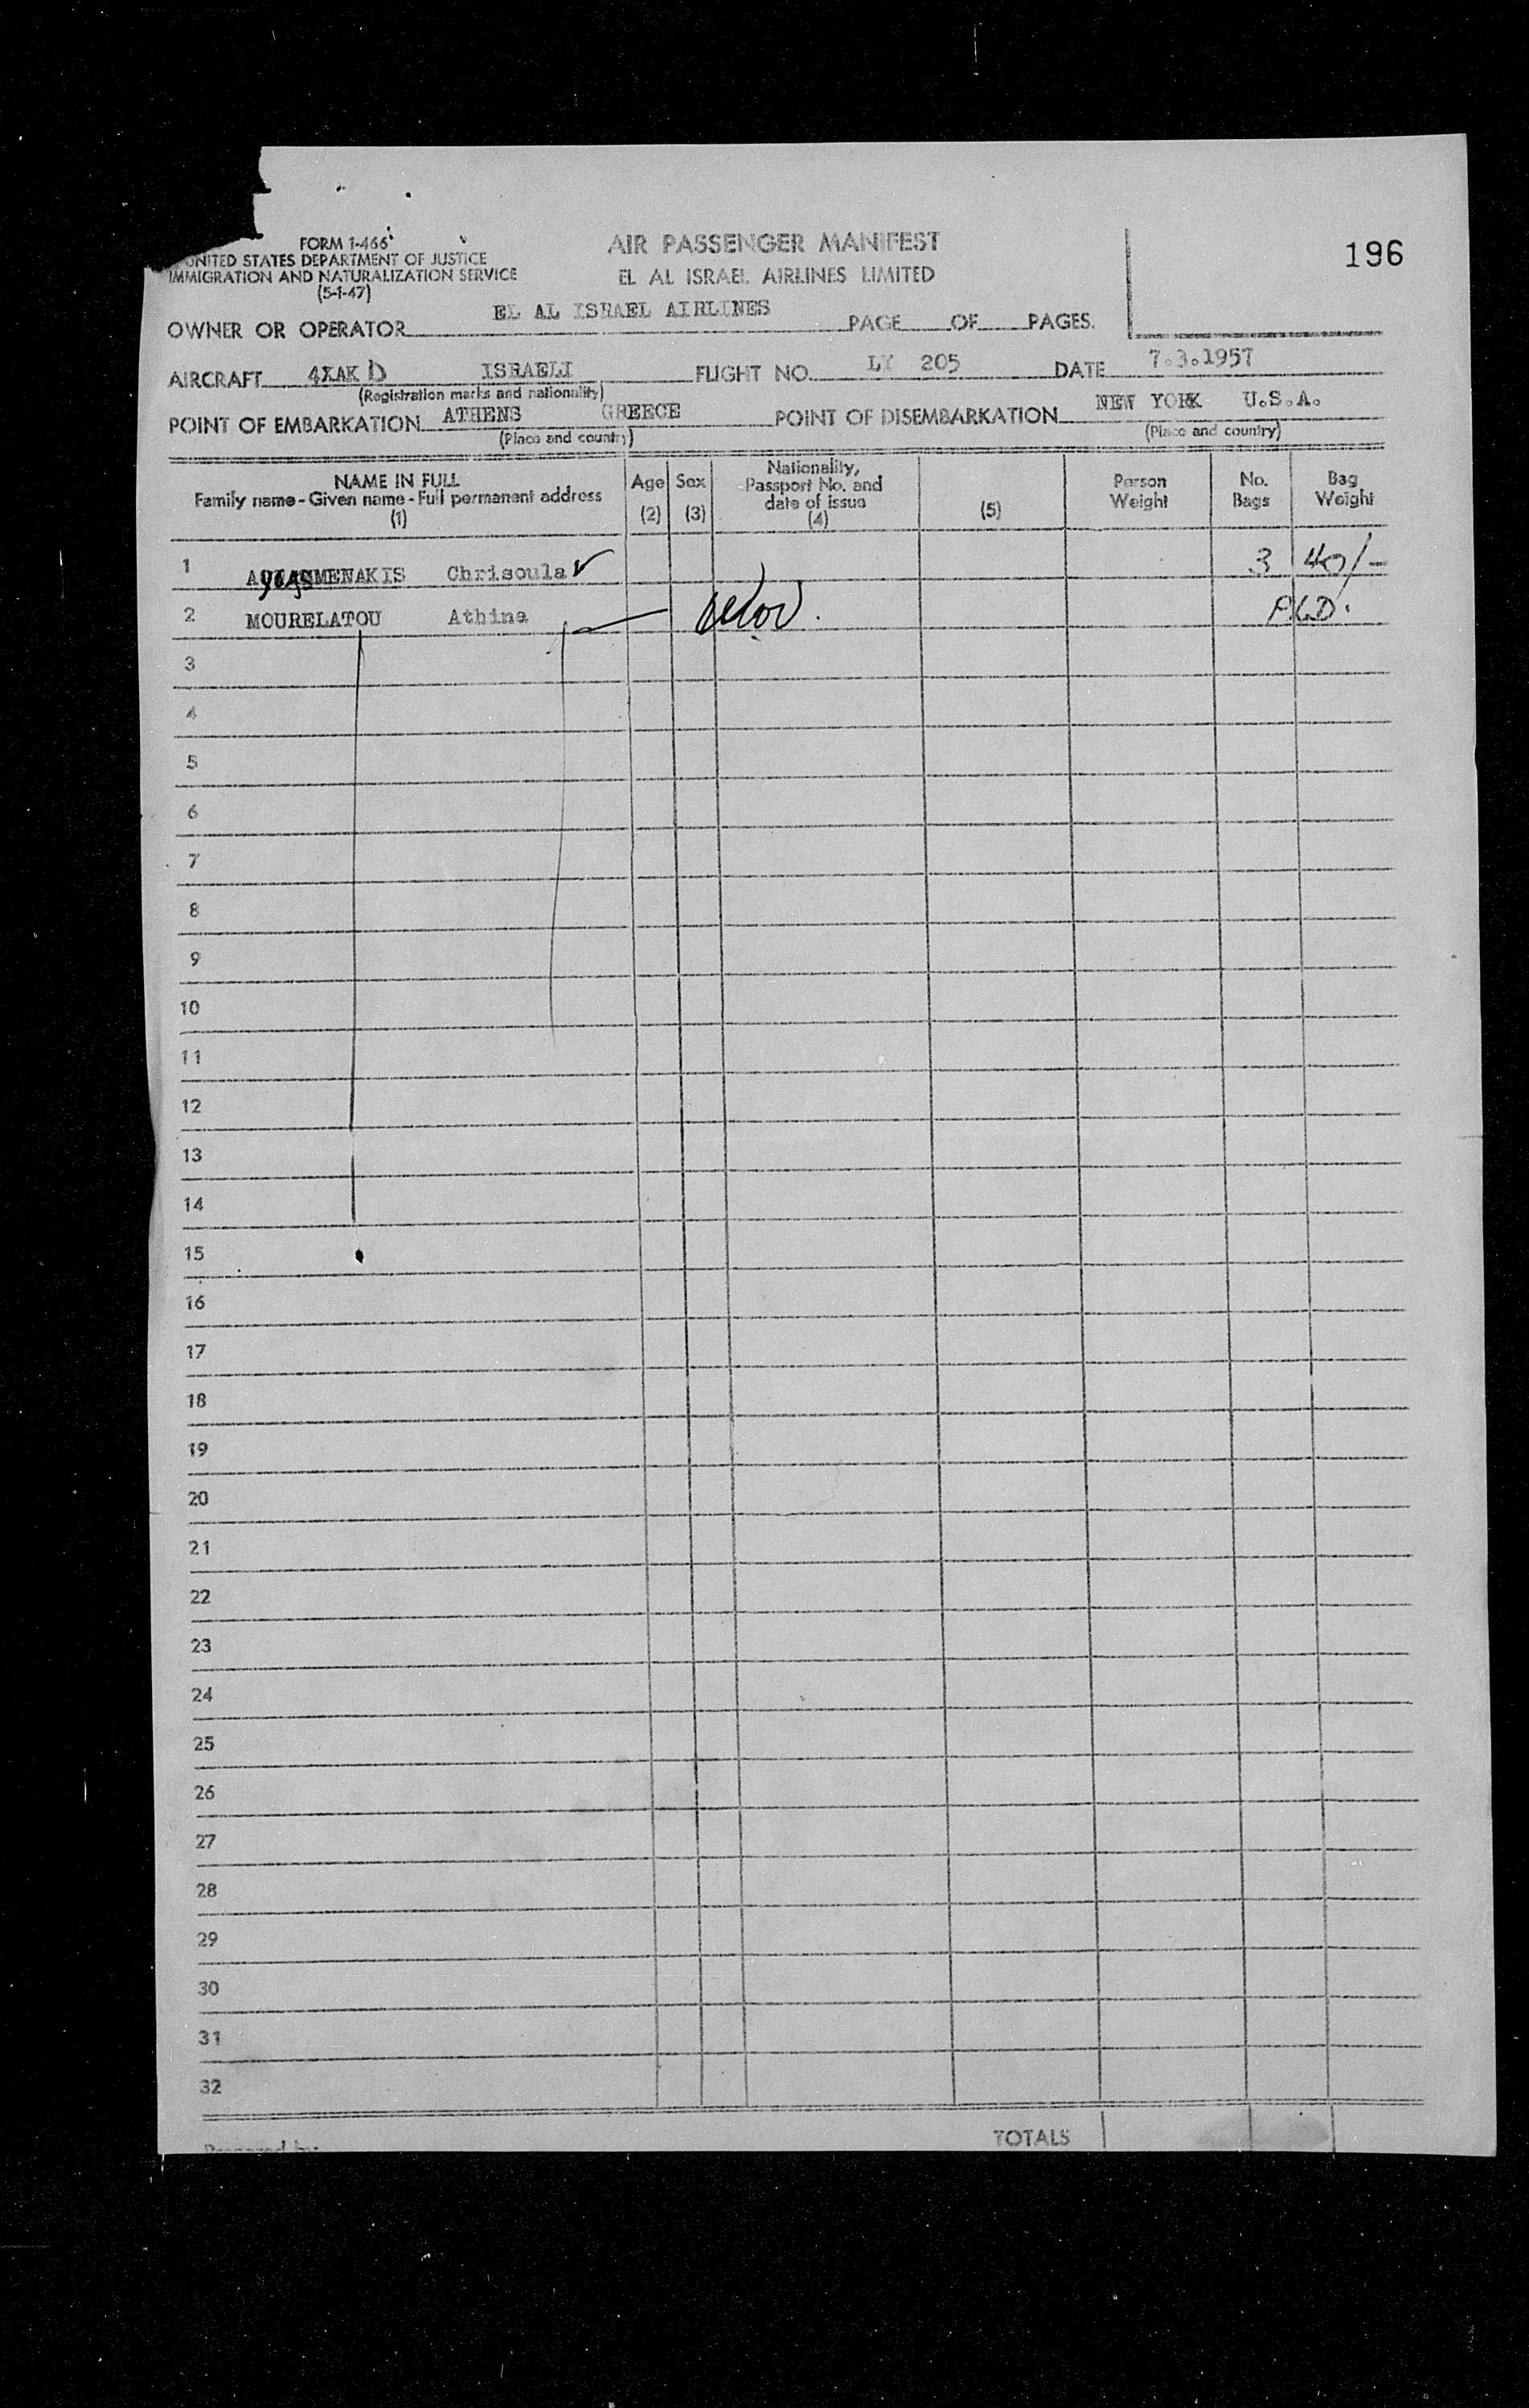 FORM 1-466
UNITED STATES DEPARTMENT OF JUSTICE
IMMIGRATION AND NATURALIZATION SERVICE
(5-1-47)
AIR PASSENGER MANIFEST
EL AL ISRAEL AIRLINES LIMITED
196
OWNER OR OPERATOR EL AL ISRAEL AIRLINES PAGE OF PAGES.
AIRCRAFT 4XAK D ISRAELI FLIGHT NO. LY 205 DATE 7.3.1957
(Registration marks and nationality)
POINT OF EMBARKATION ATHENS GREECE POINT OF DISEMBARKATION NEW YORK U.S.A.
(Place and country) (Place and country)
NAME IN FULL
Family name - Given name - Full permanent address
(1)
Age
(2)
Sex
(3)
Nationality,
Passport No. and
date of issue
(4)
(5)
Person
Weight
No.
Bags
Bag
Weight
1 Chrisoula 3 40/-
2 MOURELATOU Athina
3
4
5
6
7
8
9
10
11
12
13
14
15
16
17
18
19
20
21
22
23
24
25
26
27
28
29
30
31
32
TOTALS